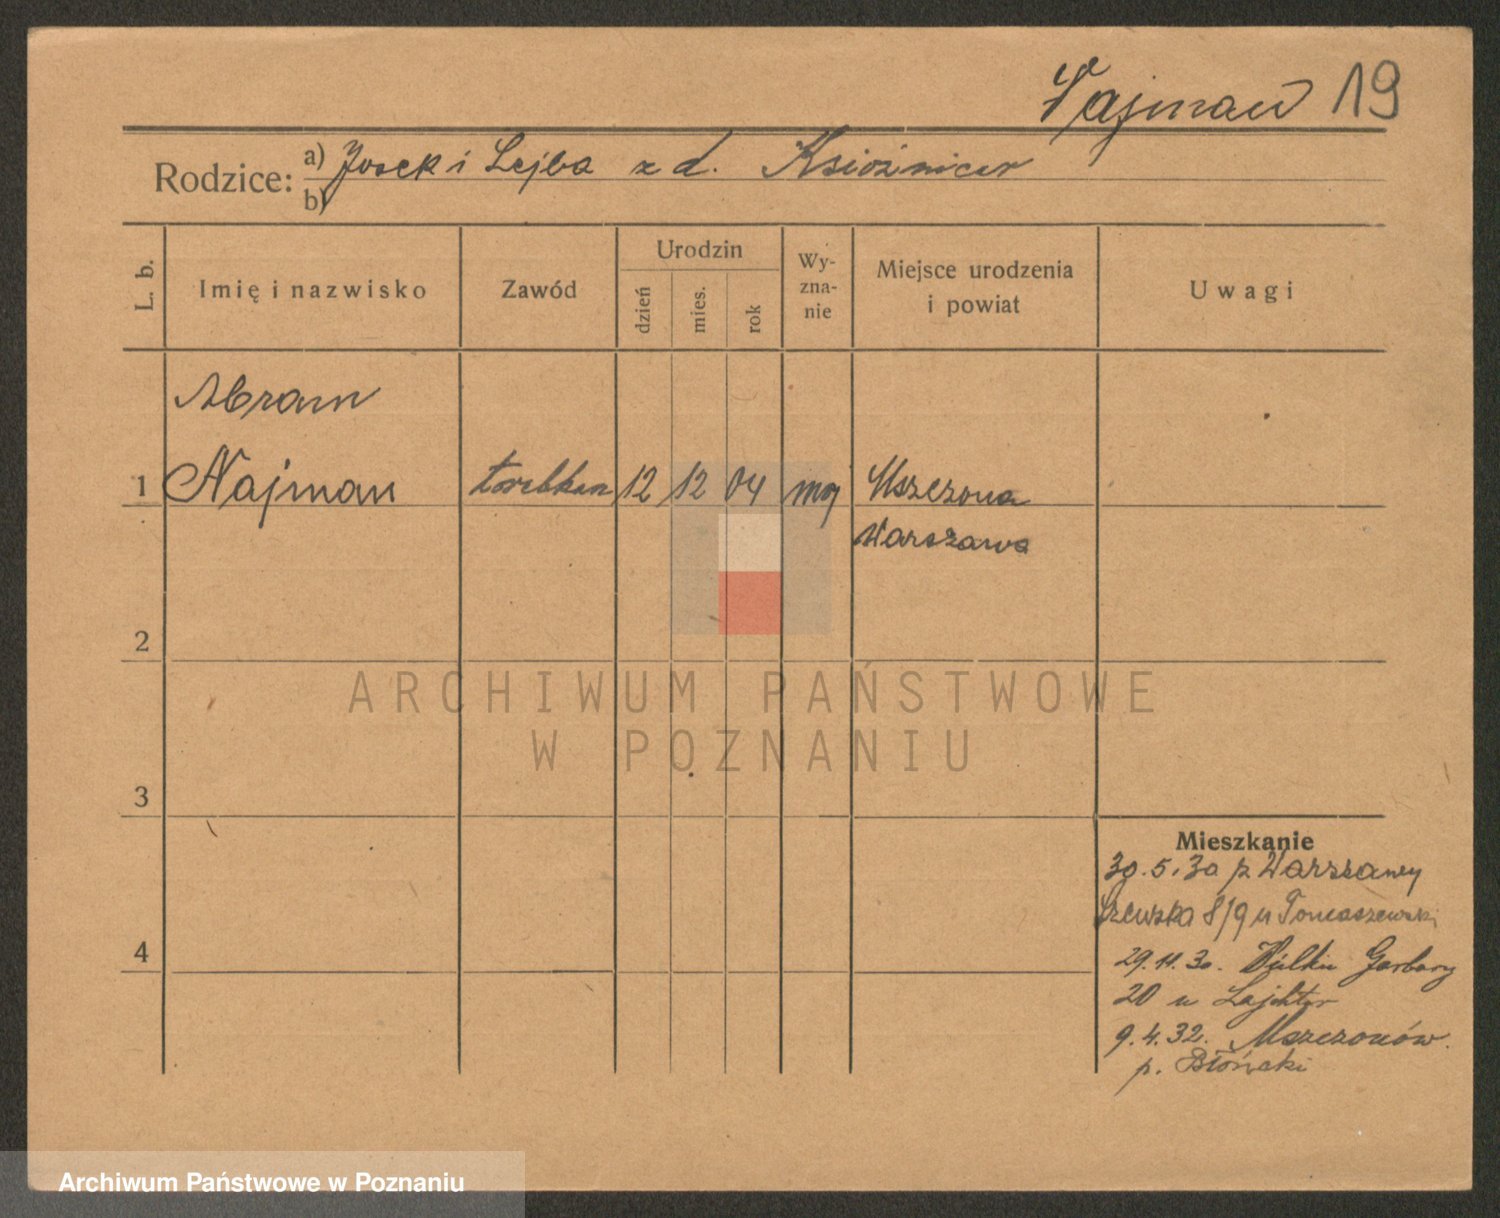 Najman 19
Rodzice: a) Josek i Lejba z d.
b)
L. b.
Imię i nazwisko
Zawód
Urodzin
dzień
mies.
rok
Wy-
zna-
nie
Miejsce urodzenia
i powiat
Uwagi
Abram
1 Najman 12 12 04 moj
Warszawa
2
ARCHIWUM PAŃSTWOWE
W POZNANIU
3
Mieszkanie
30.5.30 z Warszawy
8/9 u Tomaszewski
4
29.11.30. Wielkie Garbary
20 u Lajchter
9.4.32. Mszczonów.
p. Błoński
Archiwum Państwowe w Poznaniu